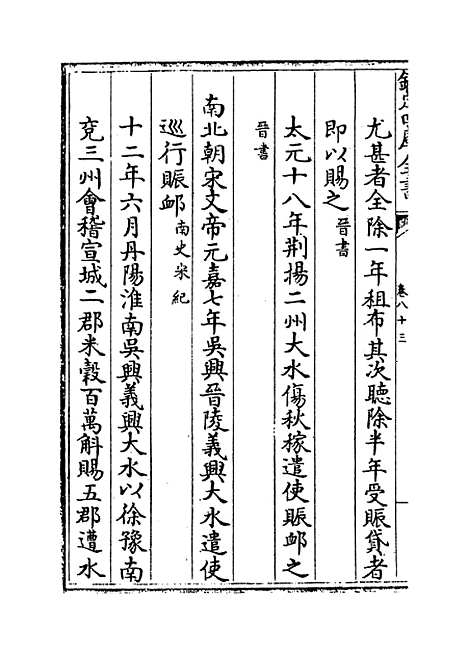 欽定四庫全書
卷八十三
尤甚者全除一年租布其次聽除半年受賑貸者
即以賜之晉書
太元十八年荆揚二州大水傷秋稼遣使賑䘏之
晉書
南北朝宋文帝元嘉七年吳興晉陵義興大水遣使
巡行賑䘏南史宋紀
十二年六月丹陽淮南吳興義興大水以徐豫南
兖三州會稽宣城二郡米穀百萬斛賜五郡遭水